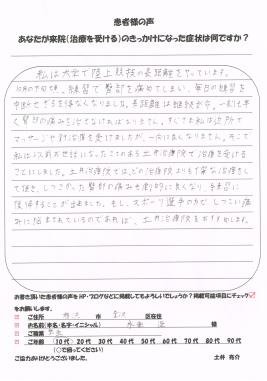 患者様の声
あなたが来院(治療を受ける)のきっかけになった症状は何ですか?
私は大学で陸上競技の長距離をやっています。
10月の下旬頃、練習で臀部を痛めてしまい、毎日の練習を
中断せざるを得なくなりました。長距離は継続が命。一刻も早
く臀部の痛みを治さなければなりません。すぐさま私は近所で
マッサージや針治療を受けましたが、一向に良くなりません。そこで
私は以前お世話になったことのある土井治療院で治療を受ける
ことにしました。土井治療院ではどの治療院よりも丁寧な治療をし
て頂き、しつこかった臀部の痛みも劇的に良くなり、練習に
復帰することが出来ました。もし、スポーツ選手の方でしつこい痛
みに悩まされているのであれば、土井治療院をおすすめします。
お書き頂いた患者様の声をHP・ブログなどに掲載してもよろしいでしょうか?掲載可能項目にチェック
をお願いします。
ご住所 市 区在住
お名前(本名・名字・イニシャル) 様
ご職業 学生
ご年齢 (10代 20代 30代 40代 50代 60代 70代 80代)
(○で囲ってください)
ご協力ありがとうございました。 土井